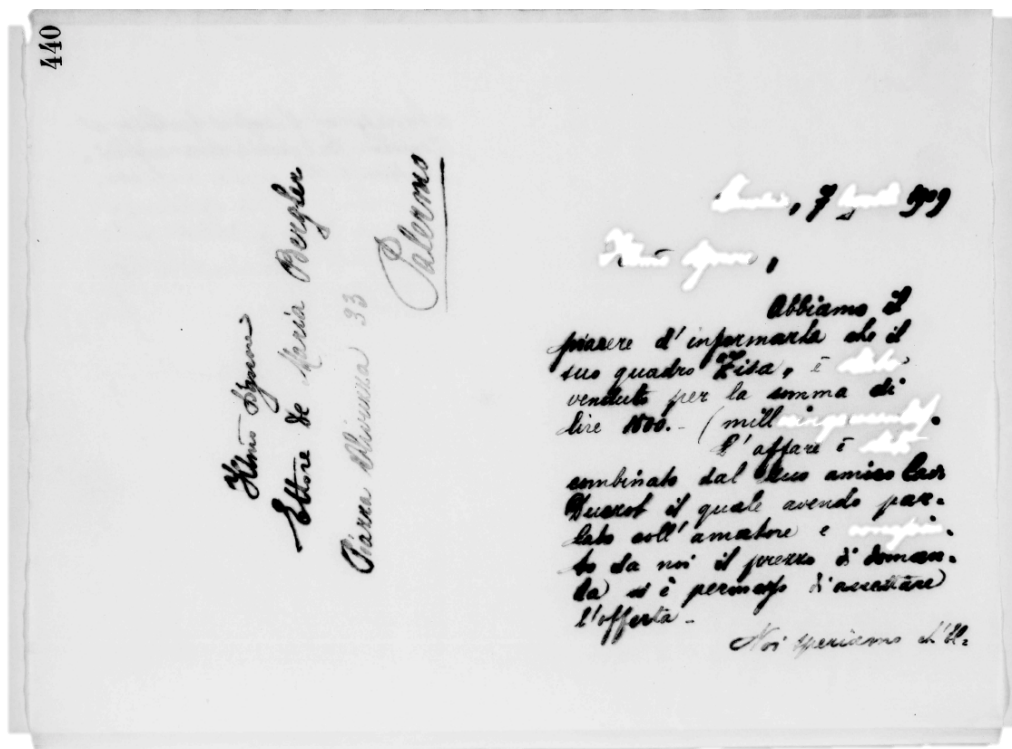 440
Illmo Signore
Ettore de Maria Bergler
Piazza 33
Palermo
, 7 1909
Illmo Signore,
Abbiamo il
piacere d'informarla che il
suo quadro Zisa, è stato
venduto per la somma di
lire 1500.- (mille
L'affare è stato
combinato dal Suo amico Cav
Ducrot il quale avendo par-
lato coll'amatore e
to da noi il prezzo di doman-
da si è permesso d'accettare
l'offerta -
Noi speriamo ch'El=